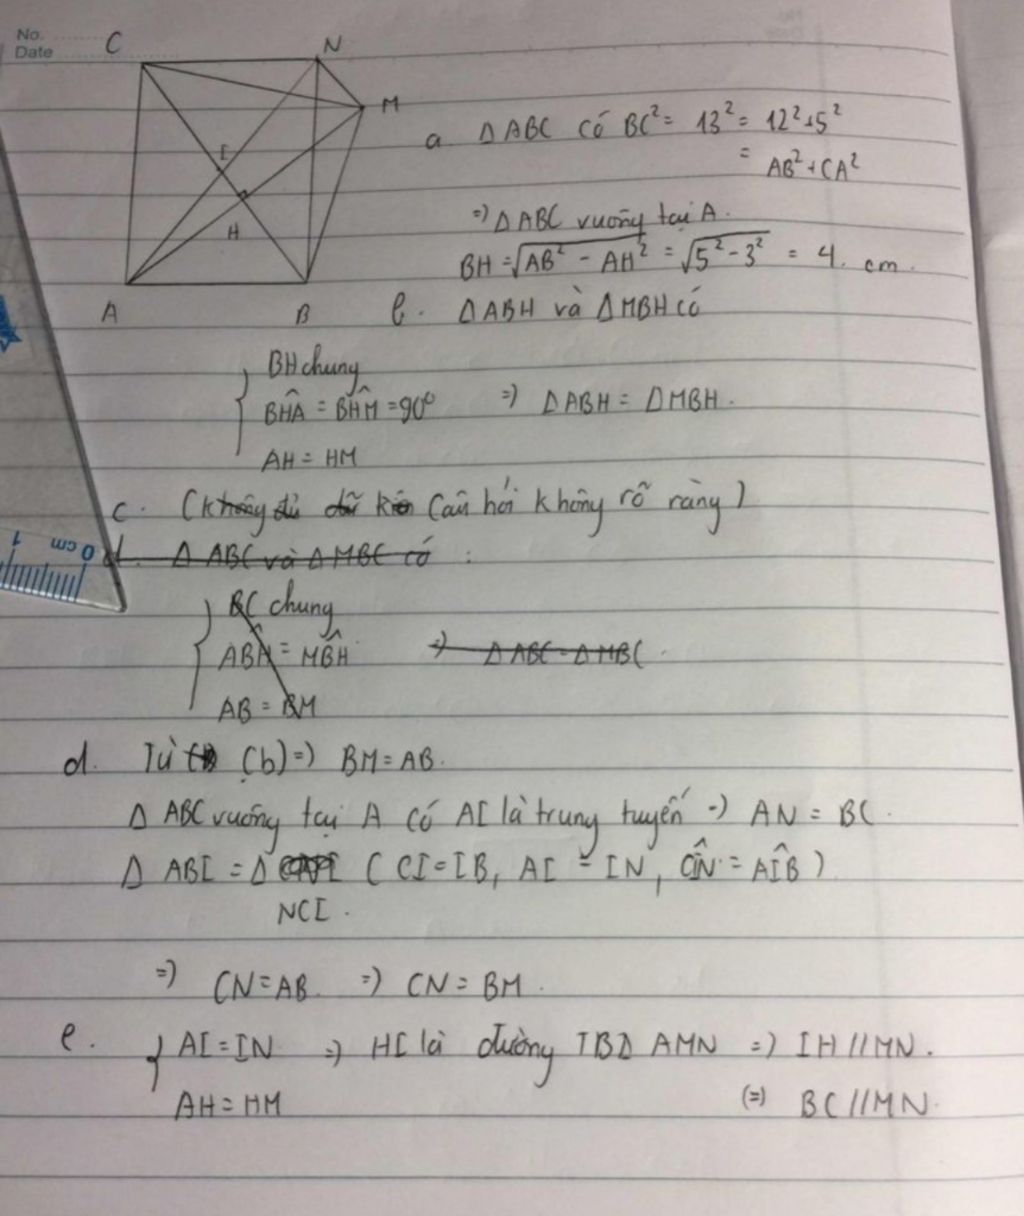 No.
Date
C
N
M
I
H
A
B
a. ΔABC có BC² = 13² = 12²+5²
= AB² + CA²
=) ΔABC vuông tại A.
BH = √AB² - AH² = √5² - 3² = 4. cm.
b. ΔABH và ΔMBH có
BH chung
BĤA = BĤM = 90° =) ΔABH = ΔMBH.
AH = HM
c. (không đủ dữ kiện Câu hỏi không rõ ràng)
d. ΔABC và ΔMBC có :
BC chung
AB̂H = MB̂H =) ΔABC = ΔMBC.
AB = BM
d. Từ (b) =) BM = AB.
Δ ABC vuông tại A có AI là trung tuyến =) AN = BC.
Δ ABI = Δ ( CI = IB, AI = IN, CIN̂ = AÎB )
NCI.
=) CN = AB. =) CN = BM.
e. AI = IN =) HI là đường TBΔ AMN =) IH // MN.
AH = HM (=) BC // MN.
1 0 cm